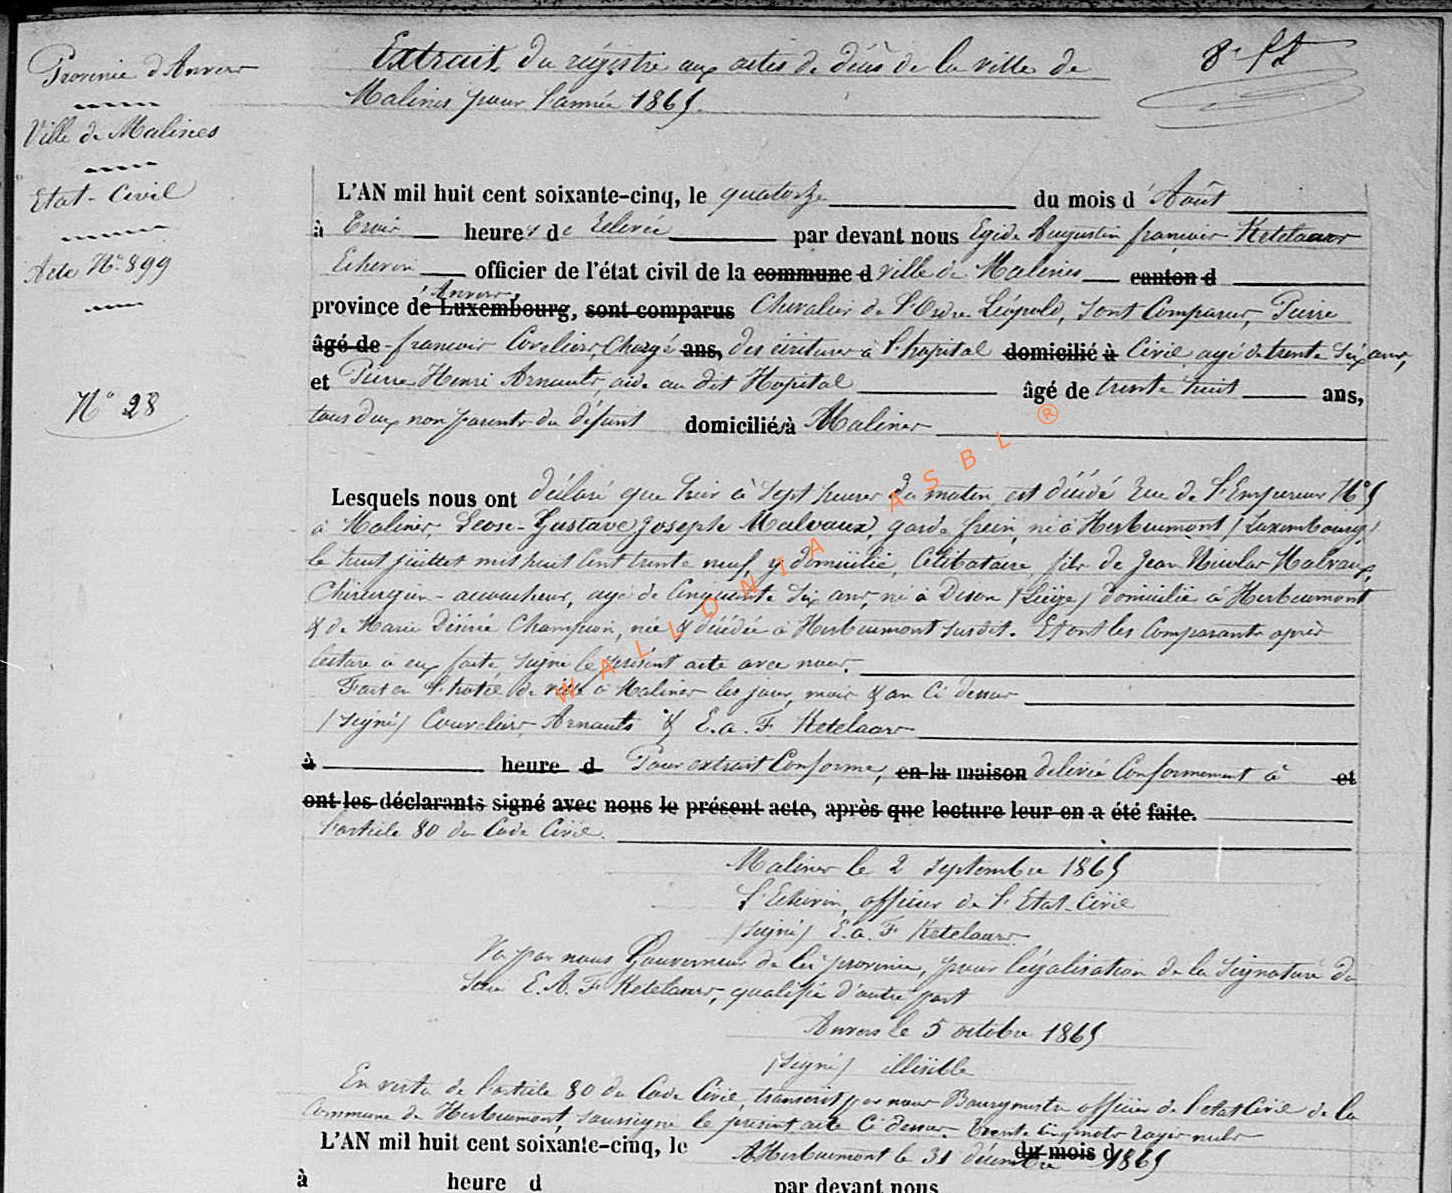 Province d'Anvers
Ville de Malines
Etat-Civil
Acte N° 899
N° 28
Extrait du régistre aux actes de décès de la ville de
Malines pour l'année 1865.
L'AN mil huit cent soixante-cinq, le quatorze du mois d'Août
à Trois heures de Relevée par devant nous Egide Augustin françois Ketelaars
Echevin officier de l'état civil de la commune d ville de Malines canton d
d'Anvers,
province de Luxembourg, sont comparus Chevalier de l'Ordre Léopold, sont Comparus, Pierre
âgé de françois Chargé ans, des écritures à l'hopital domicilié à Civil agé de trente six ans,
et Pierre Henri Arnauts, aide au dit Hopital âgé de trente huit ans,
tous deux non parents du défunt domiciliés à Malines
Lesquels nous ont déclaré que hier à sept heures du matin est décédé Rue de l'Empereur N° 5
à Malines, Leon-Gustave Joseph Malvaux, garde frein, né à Herbeumont (Luxembourg)
le huit juillet mil huit cent trente neuf, y domicilié, Célibataire, fils de Jean Nicolas Malvaux,
Chirurgien-accoucheur, agé de Cinquante Six ans, né à Dison (Liège) domicilié à Herbeumont
& de Marie Désirée Champion, née & décédée à Herbeumont susdit. Et ont les Comparants après
lecture à eux faite signé le présent acte avec nous.
Fait en l'hotel de ville à Malines les jour, mois & an Ci dessus
(signé) Arnauts & E. a. F Ketelaars
à heure d Pour extrait Conforme, en la maison delivré Conformement à et
ont les déclarants signé avec nous le présent acte, après que lecture leur en a été faite.
l'article 80 du Code Civil.
Malines le 2 septembre 1865
L'Echevin, officier de l'Etat-Civil
(signé) E. a. F Ketelaars
Vu par nous Gouverneur de la province, pour légalisation de la signature du
Sieur E. A. F Ketelaars, qualifié d'autre part
Anvers le 5 octobre 1865
(signé) illisible
En vertu de l'article 80 du Code Civil, transcrit par nous Bourgmestre officier de l'etat Civil de la
Commune de Herbeumont, soussigné le présent acte Ci dessus. Trente cinq mots rayés nuls
L'AN mil huit cent soixante-cinq, le du mois d
A Herbeumont le 31 décembre 1865
à heure d par devant nous
WALLONIA ASBL ®